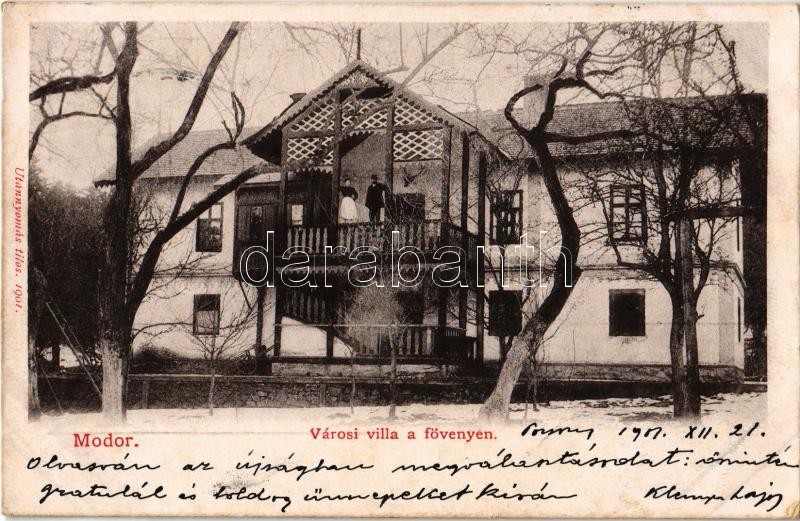 Utánnyomás tilos. 1901.
darabanth
Modor.
Városi villa a fövenyen.
1901. XII. 21.
Olvasván az újságban megválasztásodat: őszintén
gratulál és boldog ünnepeket kíván
Lajos